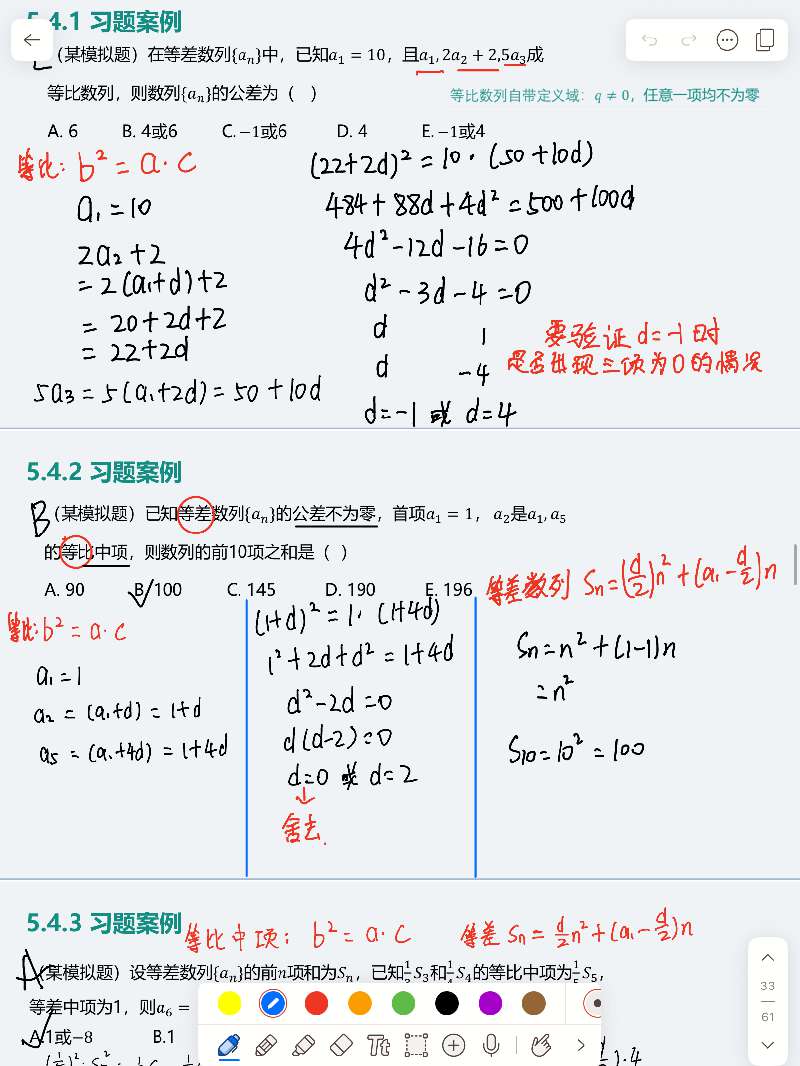 5.4.1 习题案例
（某模拟题）在等差数列{aₙ}中，已知a₁ = 10，且a₁, 2a₂ + 2,5a₃成
等比数列，则数列{aₙ}的公差为（ ）
等比数列自带定义域：q ≠ 0，任意一项均不为零
A. 6 B. 4或6 C. −1或6 D. 4 E. −1或4
等比: b² = a·c
a₁ = 10
2a₂ + 2
= 2(a₁+d)+2
= 20+2d+2
= 22+2d
5a₃ = 5(a₁+2d) = 50+10d
(22+2d)² = 10·(50+10d)
484+88d+4d² = 500+100d
4d²-12d-16=0
d²-3d-4=0
d 1
d -4
d=-1 或 d=4
要验证d=-1时
是否出现三项为0的情况
5.4.2 习题案例
B（某模拟题）已知等差数列{aₙ}的公差不为零，首项a₁ = 1，a₂是a₁, a₅
的等比中项，则数列的前10项之和是（ ）
A. 90 B. 100 C. 145 D. 190 E. 196
等比: b² = a·c
a₁ = 1
a₂ = (a₁+d) = 1+d
a₅ = (a₁+4d) = 1+4d
(1+d)² = 1·(1+4d)
1²+2d+d² = 1+4d
d²-2d=0
d(d-2)=0
d=0 或 d=2
舍去.
等差数列 Sn=(d/2)n²+(a₁-d/2)n
Sn=n²+(1-1)n
=n²
S₁₀=10²=100
5.4.3 习题案例
等比中项: b²=a·c 等差 Sn=d/2n²+(a₁-d/2)n
A（某模拟题）设等差数列{aₙ}的前n项和为Sₙ，已知1/3S₃和1/4S₄的等比中项为1/5S₅，
等差中项为1，则a₆ =
A.1或−8 B.1
33
61
Tt